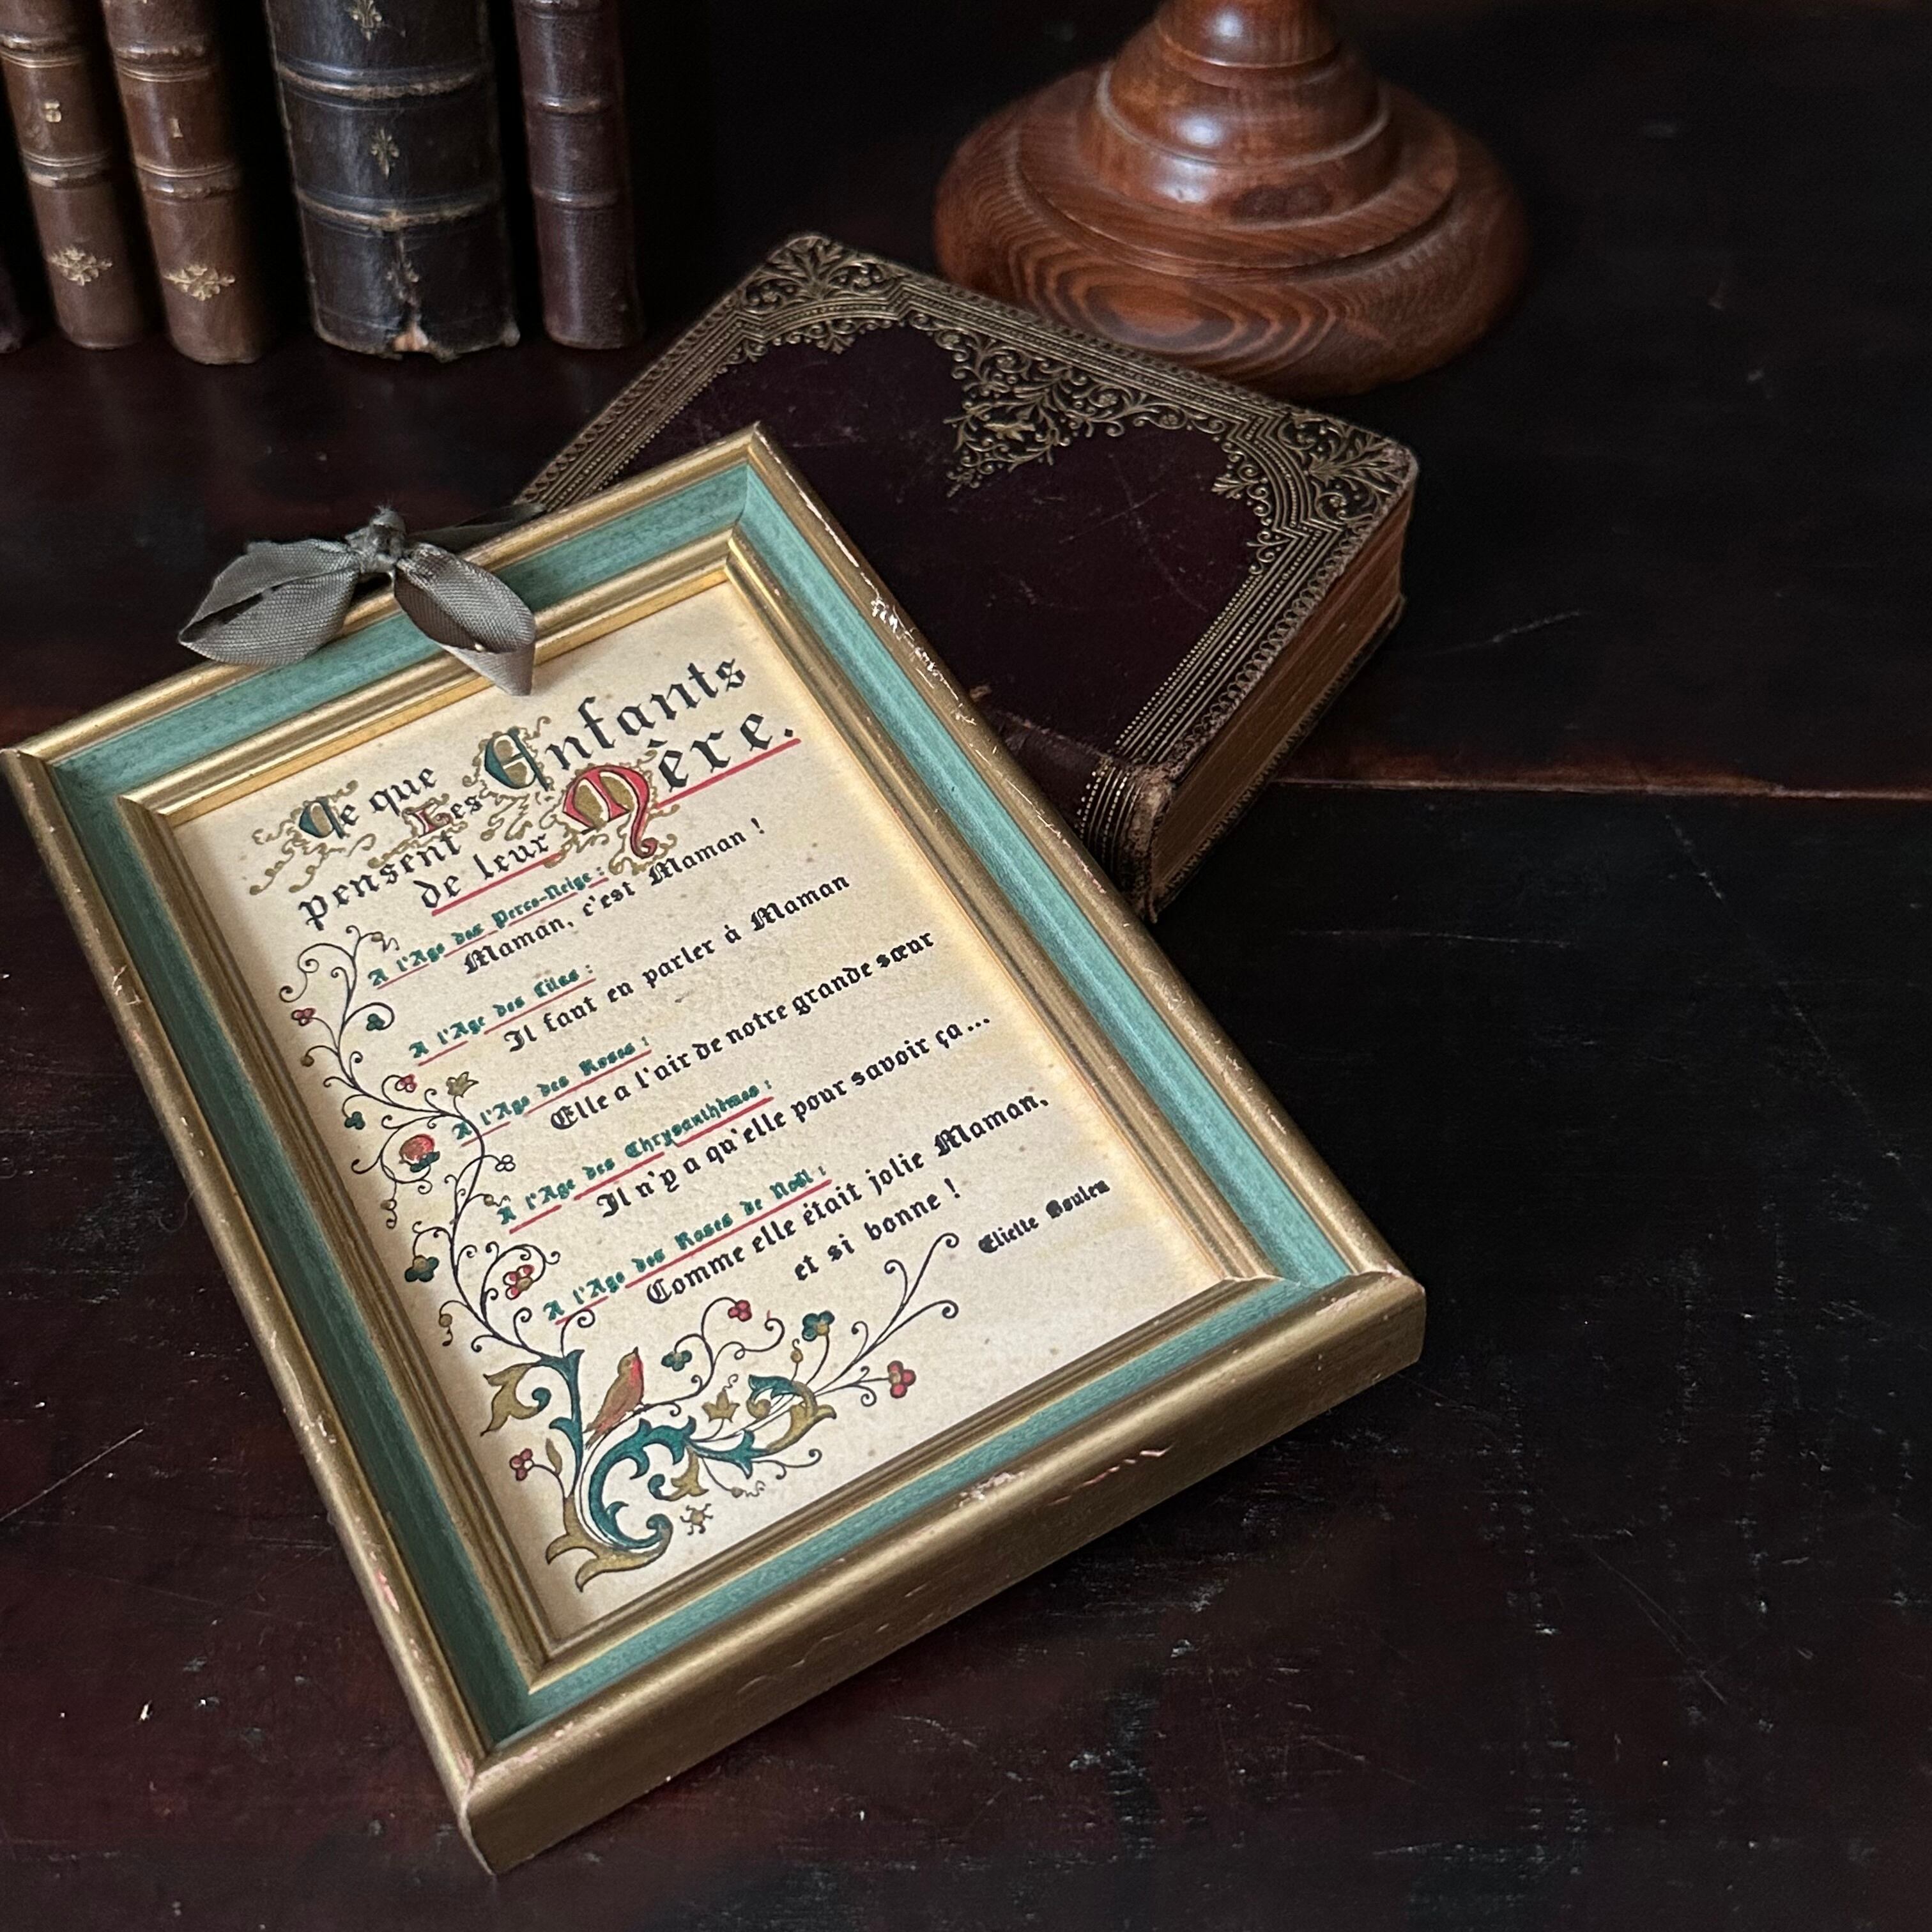 5
1
Ce que Les Enfants
pensent
de leur Mère.
A l'Age des Perce-Neige :
Maman, c'est Maman !
A l'Age des Lilas :
Il faut en parler à Maman
A l'Age des Roses :
Elle a l'air de notre grande sœur
A l'Age des Chrysanthèmes :
Il n'y a qu'elle pour savoir ça...
A l'Age des Roses de Noël :
Comme elle était jolie Maman,
et si bonne !
Eliette